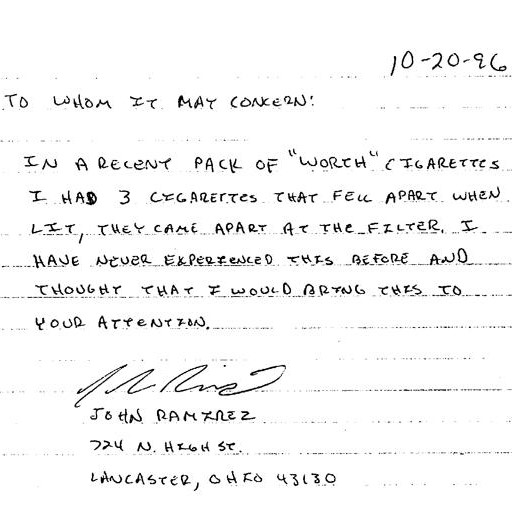 10-20-96
TO WHOM IT MAY CONCERN:
IN A RECENT PACK OF "WORTH" CIGARETTES
I HAD 3 CIGARETTES THAT FELL APART WHEN
LIT, THEY CAME APART AT THE FILTER. I
HAVE NEVER EXPERIENCED THIS BEFORE AND
THOUGHT THAT I WOULD BRING THIS TO
YOUR ATTENTION.
JOHN RAMIREZ
724 N. HIGH ST.
LANCASTER, OHIO 43130